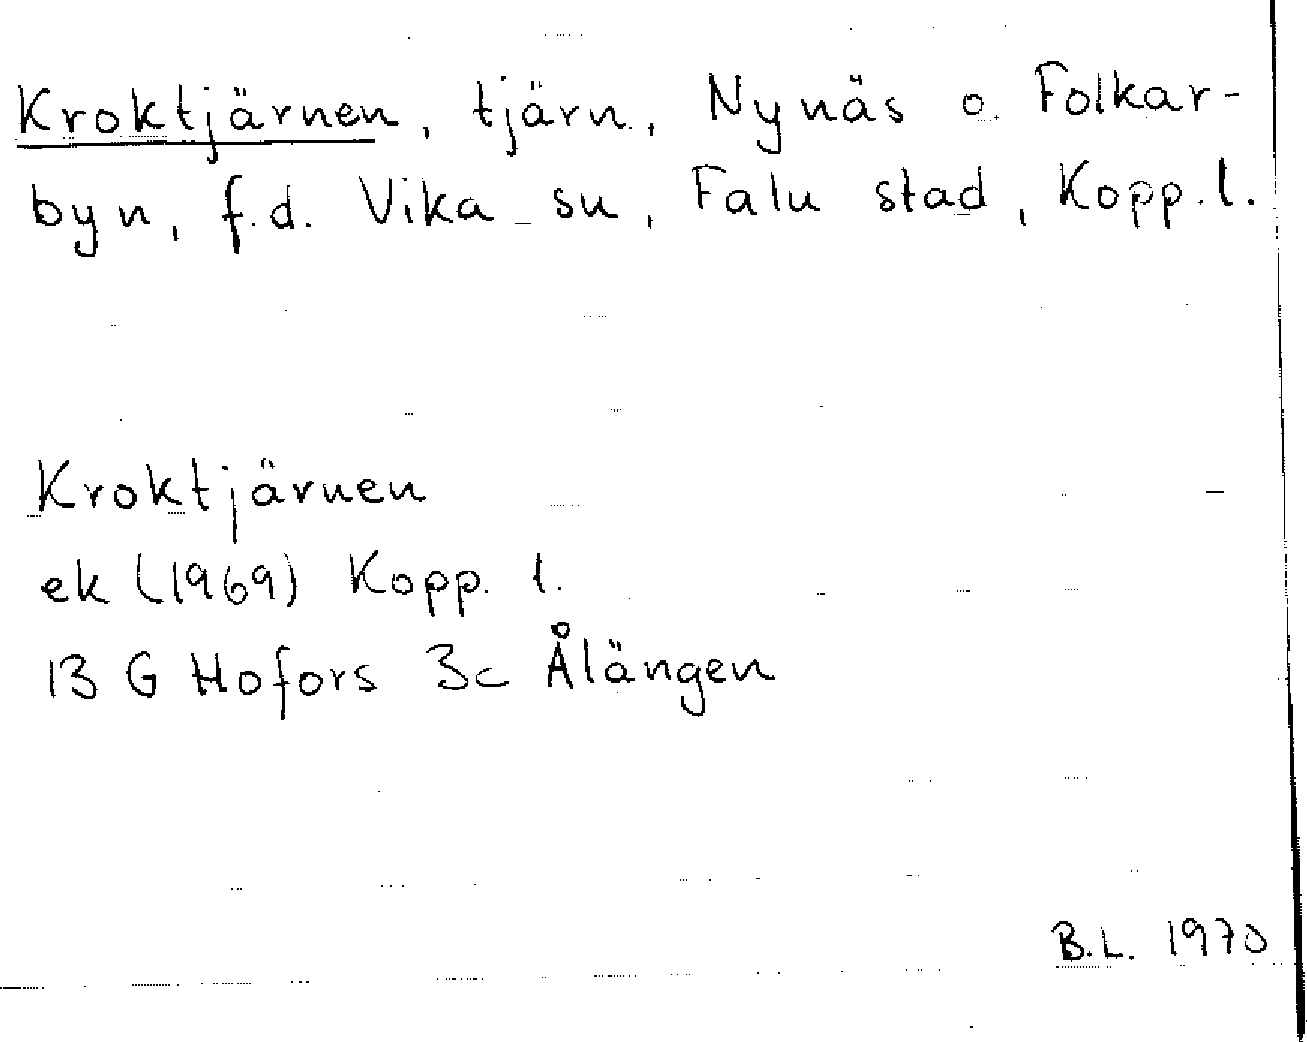 Kroktjärnen, tjärn, Nynäs o. Folkar-
byn, f.d. Vika sn, Falu stad, Kopp.l.
Kroktjärnen
ek (1969) Kopp. l.
13 G Hofors 3c Ålängen
B.L. 1970